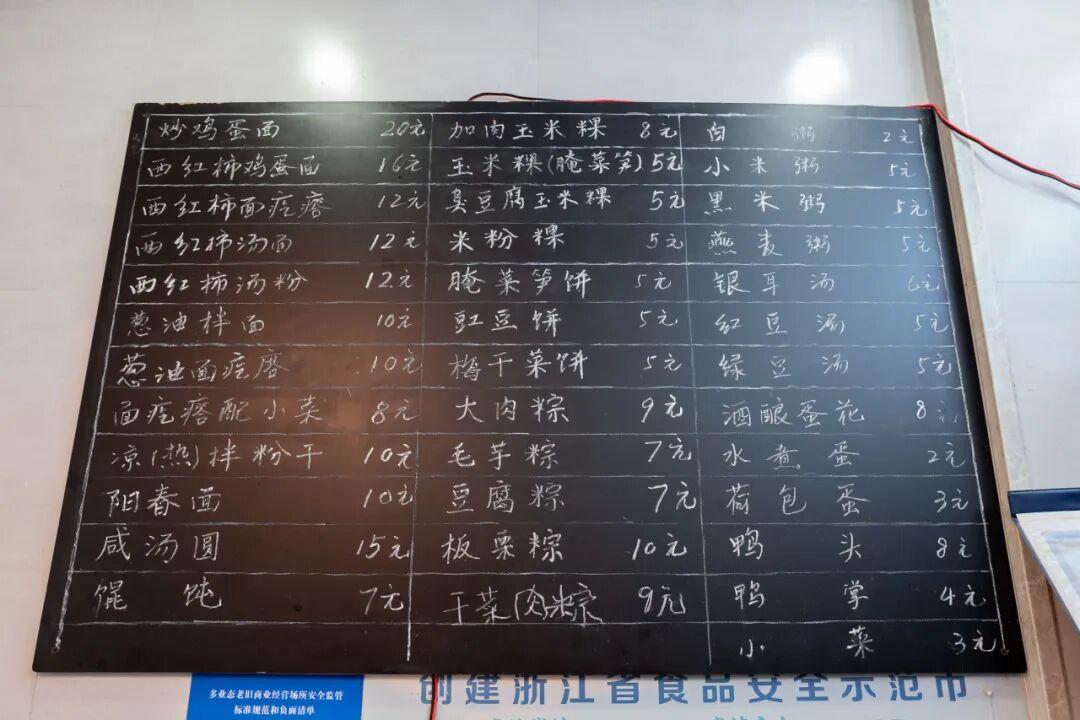 炒鸡蛋面 20元 加肉玉米粿 8元 白粥 2元
西红柿鸡蛋面 16元 玉米粿(腌菜笋) 5元 小米粥 5元
西红柿面疙瘩 12元 臭豆腐玉米粿 5元 黑米粥 5元
西红柿汤面 12元 米粉粿 5元 燕麦粥 5元
西红柿汤粉 12元 腌菜笋饼 5元 银耳汤 6元
葱油拌面 10元 豇豆饼 5元 红豆汤 5元
葱油面疙瘩 10元 梅干菜饼 5元 绿豆汤 5元
面疙瘩配小菜 8元 大肉粽 9元 酒酿蛋花 8元
凉(热)拌粉干 10元 毛芋粽 7元 水煮蛋 2元
阳春面 10元 豆腐粽 7元 荷包蛋 3元
咸汤圆 15元 板栗粽 10元 鸭头 8元
馄饨 7元 干菜肉粽 9元 鸭掌 4元
小菜 3元
多业态老旧商业经营场所安全监管
标准规范和负面清单
创建浙江省食品安全示范市